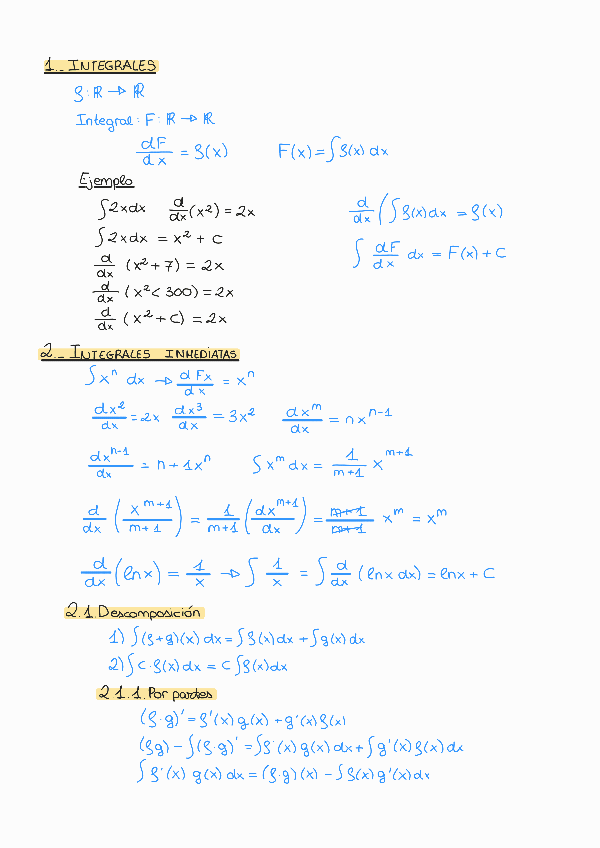 1._ INTEGRALES
f: ℝ → ℝ
Integral: F: ℝ → ℝ
dF/dx = f(x)    F(x) = ∫f(x) dx
Ejemplo
∫2xdx    d/dx (x²) = 2x    d/dx (∫ f(x)dx = f(x)
∫2xdx = x² + C
∫ dF/dx dx = F(x) + C
d/dx (x² + 7) = 2x
d/dx (x² < 300) = 2x
d/dx (x² + C) = 2x
2_ INTEGRALES INMEDIATAS
∫xⁿ dx → d Fx/dx = xⁿ
dx²/dx = 2x    dx³/dx = 3x²    dxᵐ/dx = nxⁿ⁻¹
dxⁿ⁻¹/dx = n + 1xⁿ    ∫xᵐ dx = 1/(m+1) x^(m+1)
d/dx (x^(m+1)/(m+1)) = 1/(m+1) (dx^(m+1)/dx) = (m+1)/(m+1) xᵐ = xᵐ
d/dx (lnx) = 1/x → ∫ 1/x = ∫ d/dx (lnx dx) = lnx + C
2.1. Descomposición
1) ∫(f+g)(x) dx = ∫f(x)dx + ∫g(x)dx
2) ∫C·f(x)dx = C ∫f(x)dx
2.1.1. Por partes
(f·g)' = f'(x) g(x) + g'(x)f(x)
(fg) - ∫(f·g)' = ∫f'(x) g(x) dx + ∫g'(x) f(x) dx
∫f'(x) g(x) dx = (f·g)(x) - ∫f(x) g'(x) dx